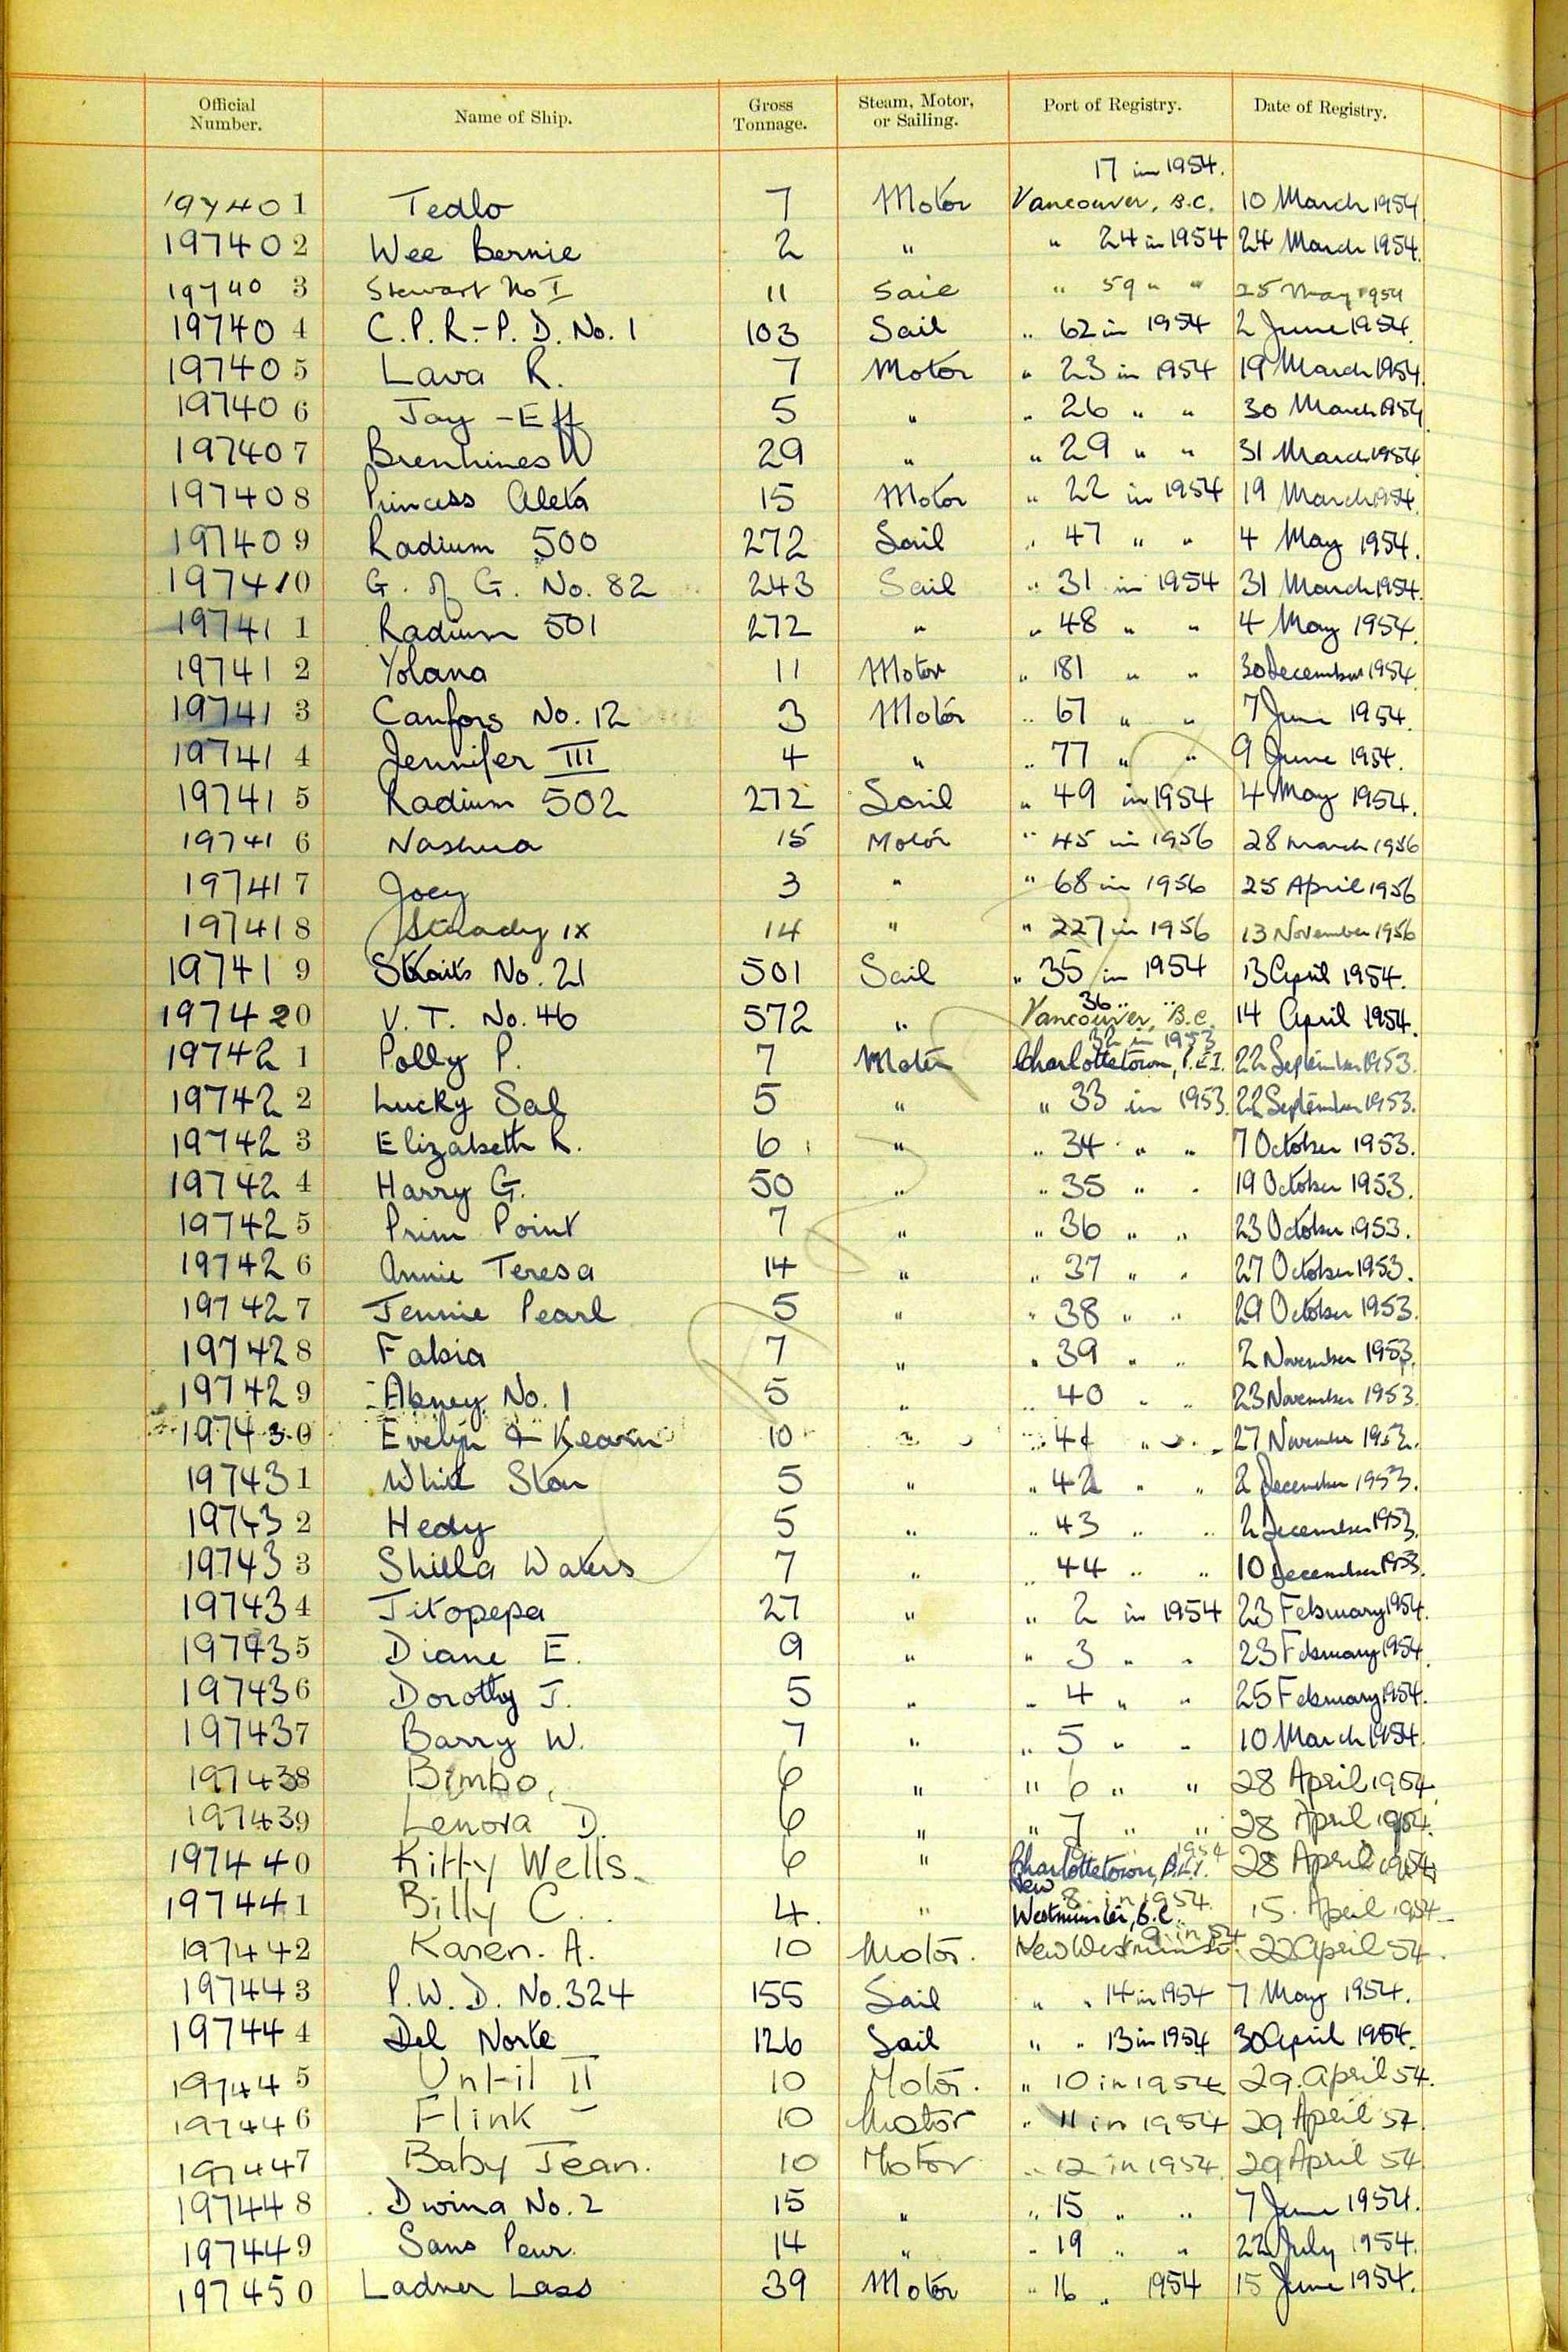 Official Number. Name of Ship. Gross Tonnage. Steam, Motor, or Sailing. Port of Registry. Date of Registry.
17 in 1954.
197401 Tedlo 7 Motor Vancouver, B.C. 10 March 1954
197402 Wee Bernie 2 " " 24 in 1954 24 March 1954.
197403 Stewart No I 11 Sail " 59 " " 25 May 1954
197404 C.P.R.-P.D. No. 1 103 Sail " 62 in 1954 2 June 1954.
197405 Lava R. 7 Motor " 23 in 1954 19 March 1954.
197406 Jay-Eff 5 " " 26 " " 30 March 1954
197407 Brenhines W 29 " " 29 " " 31 March 1954
197408 Princess Aleta 15 Motor " 22 in 1954 19 March 1954.
197409 Radium 500 272 Sail " 47 " " 4 May 1954.
197410 G. of G. No. 82 243 Sail " 31 in 1954 31 March 1954.
197411 Radium 501 272 " " 48 " " 4 May 1954.
197412 Yolana 11 Motor " 181 " " 30 December 1954.
197413 Canfors No. 12 3 Motor " 67 " " 7 June 1954.
197414 Jennifer III 4 " " 77 " " 9 June 1954.
197415 Radium 502 272 Sail " 49 in 1954 4 May 1954.
197416 Nashua 15 Motor " 45 in 1956 28 March 1956
197417 Joey 3 " " 68 in 1956 25 April 1956
197418 Steady IX 14 " " 227 in 1956 13 November 1956
197419 Straits No. 21 501 Sail " 35 in 1954 13 April 1954.
36 " "
197420 V.T. No. 46 572 " Vancouver, B.C. 14 April 1954.
32 in 1953
197421 Polly P. 7 Motor Charlottetown, P.E.I. 22 September 1953.
197422 Lucky Sal 5 " " 33 in 1953. 22 September 1953.
197423 Elizabeth R. 6 " " 34 " " 7 October 1953.
197424 Harry G. 50 " " 35 " " 19 October 1953.
197425 Prim Point 7 " " 36 " " 23 October 1953.
197426 Annie Teresa 14 " " 37 " " 27 October 1953.
197427 Jennie Pearl 5 " " 38 " " 29 October 1953.
197428 Fabia 7 " " 39 " " 2 November 1953.
197429 Abney No. 1 5 " " 40 " " 23 November 1953.
197430 Evelyn & Kearin 10 " " 41 " " 27 November 1953.
197431 White Star 5 " " 42 " " 2 December 1953.
197432 Hedy 5 " " 43 " " 2 December 1953.
197433 Shiela Waters 7 " " 44 " " 10 December 1953.
197434 Jitopepa 27 " " 2 in 1954 23 February 1954.
197435 Diane E. 9 " " 3 " " 23 February 1954.
197436 Dorothy J. 5 " " 4 " " 25 February 1954.
197437 Barry W. 7 " " 5 " " 10 March 1954.
197438 Bimbo. 6 " " 6 " " 28 April 1954
197439 Lenora D. 6 " " 7 " " 28 April 1954.
1954
197440 Kitty Wells. 6 " Charlottetown, P.E.I. 28 April 1954
New 8 in 1954.
197441 Billy C. 4. " Westminster, B.C. 15. April 1954
9 in 54
197442 Karen. A. 10 Motor. New Westminster. 22 April 54.
197443 P.W.D. No. 324 155 Sail " " 14 in 1954 7 May 1954.
197444 Del Norte 126 Sail " " 13 in 1954 30 April 1954.
197445 Until II 10 Motor. " 10 in 1954 29. April 54.
197446 Flink 10 Motor " 11 in 1954 29 April 54.
197447 Baby Jean. 10 Motor " 12 in 1954. 29 April 54
197448 Dwina No. 2 15 " " 15 " " 7 June 1954.
197449 Sans Peur. 14 " " 19 " " 22 July 1954.
197450 Ladner Lass 39 Motor " 16 " 1954 15 June 1954.